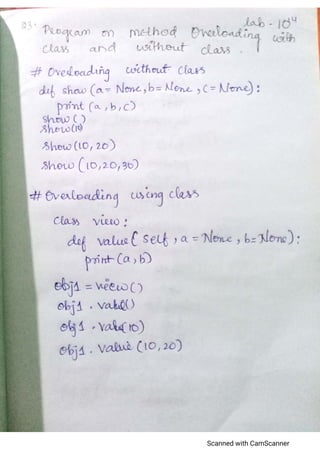 lab - 104
23. Program on method Overloading with
class and without class.
# Overloading without class
def show (a= None, b= None, c= None):
print (a, b, c)
show ( )
show(10)
show (10, 20)
show (10, 20, 30)
# Overloading using class
class view :
def value ( self , a = None , b= None):
print (a, b)
obj1 = view ( )
obj1 . value()
obj1 . value(10)
obj1 . value (10, 20)
Scanned with CamScanner